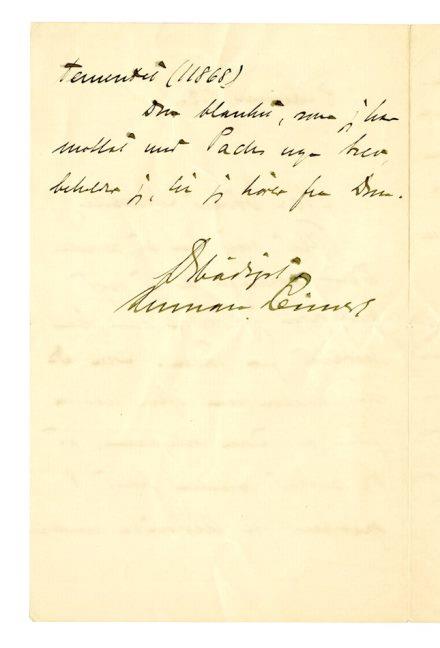 (11868)
Den blankett, som jeg har
mottat med Pachs nye brev,
beholder jeg, til jeg hører fra Dem.
Ærbødigst
Herman